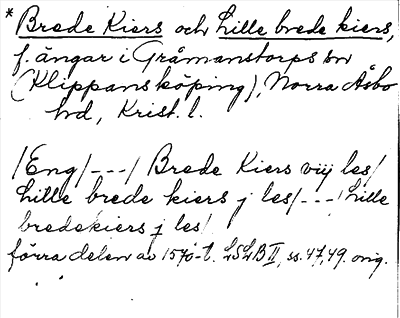 * Brede Kiers och Lille brede kiers,
f. ängar i Gråmanstorps sn
(Klippans köping), Norra Åsbo
hd, Krist. l.
/Eng/---/ Brede Kiers viij les/
Lille brede kiers j les/---/ Lille
bredekiers j les/
förra delen av 1570-t. LSLB II, ss. 47, 49. orig.